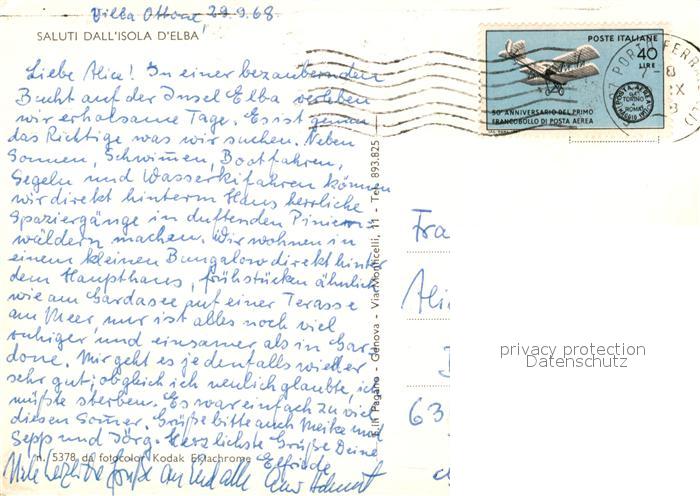 Villa Ottone, 29.9.68
SALUTI DALL'ISOLA D'ELBA
Liebe Alice! In einer bezaubernden
Bucht auf der Insel Elba verleben
wir erholsame Tage. Es ist genau
das Richtige was wir suchen. Neben
Sonnen, Schwimmen, Bootfahren,
Segeln und Wasserskifahren können
wir direkt hinterm Haus herrliche
Spaziergänge in duftenden Pinien-
wäldern machen. Wir wohnen in
einem kleinen Bungalow direkt hinter
dem Haupthaus, frühstücken ähnlich
wie am Gardasee auf einer Terasse
am Meer, nur ist alles noch viel
ruhiger und einsamer als in Gar-
done. Mir geht es jedenfalls wieder
sehr gut, obgleich ich neulich glaubte, ich
müßte sterben. Es war einfach zu viel
diesen Sommer. Grüße bitte auch Meike und
Sepp und Jörg. Herzlichste Grüße Deine
Elfriede
n. 5378 da fotocolor Kodak Ektachrome
Viele herzliche Grüße an Euch alle
F.lli Pagano - Genova - Via Monticelli, 11 - Tel. 893.825
POSTE ITALIANE
40
LIRE
50° ANNIVERSARIO DEL PRIMO
FRANCOBOLLO DI POSTA AEREA
POSTA AEREA
TORINO
ROMA
PORTOFERRAIO
Fra
63
privacy protection
Datenschutz